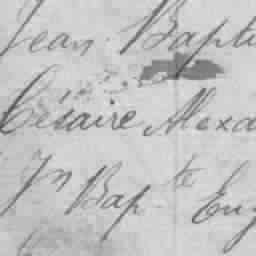 Jean Bapti
Césaire Alexa
Jn Bapte Eug